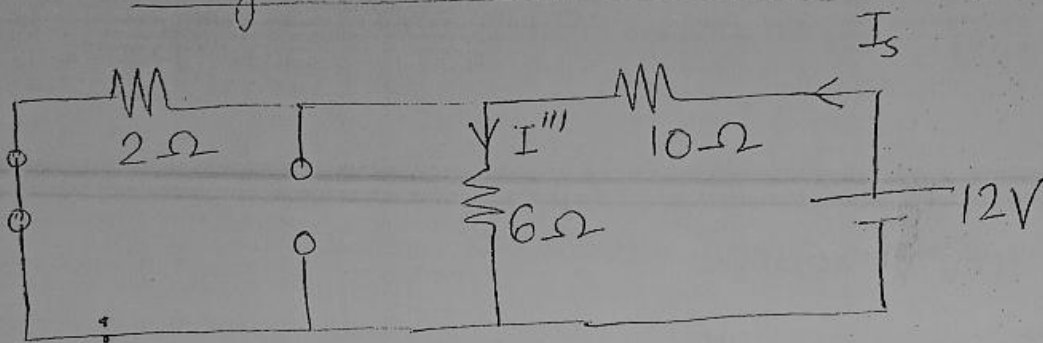 I_S
2Ω
I'''
10Ω
6Ω
12V